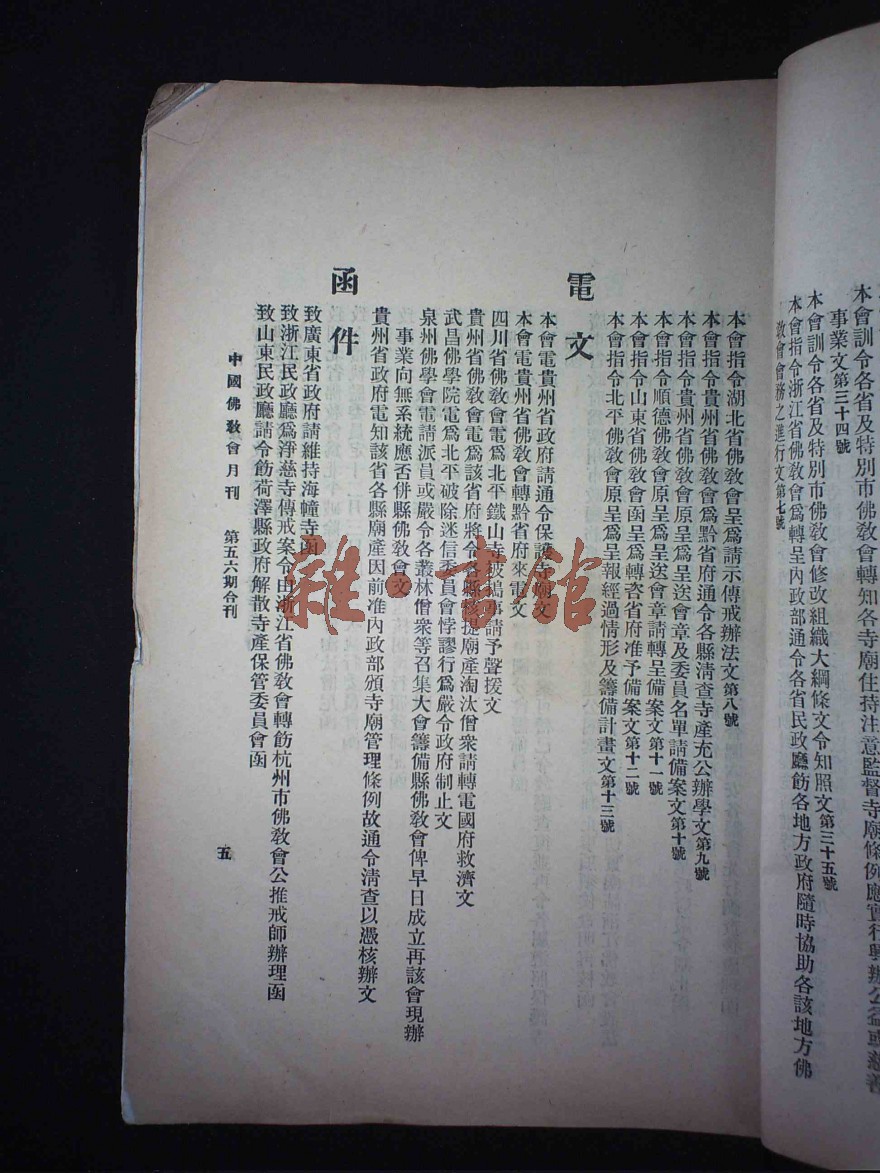 本會訓令各省及特別市佛敎會轉知各寺廟住持注意監督寺廟條例應實行興辦公益或慈善
事業文第三十四號
本會訓令各省及特別市佛敎會修改組織大綱條文令知照文第三十五號
本會指令浙江省佛敎會爲轉呈內政部通令各省民政廳飭各地方政府隨時協助各該地方佛
敎會會務之進行文第七號
本會指令湖北省佛敎會呈爲請示傳戒辦法文第八號
本會指令貴州省佛敎會爲黔省府通令各縣淸查寺產充公辦學文第九號
本會指令貴州省佛敎會原呈爲呈送會章及委員名單請備案文第十號
本會指令順德佛敎會原呈爲呈送會章請轉呈備案文第十一號
本會指令山東省佛敎會函呈爲轉咨省府准予備案文第十二號
本會指令北平佛敎會原呈爲呈報經過情形及籌備計畫文第十三號
電文
本會電貴州省政府請通令保護寺廟文
本會電貴州省佛敎會轉黔省府來電文
四川省佛敎會電爲北平鐵山寺被搗事請予聲援文
貴州省佛敎會電爲該省府將令各縣提廟產淘汰僧衆請轉電國府救濟文
武昌佛學院電爲北平破除迷信委員會悖謬行爲嚴令政府制止文
泉州佛學會電請派員或嚴令各叢林僧衆等召集大會籌備縣佛敎會俾早日成立再該會現辦
事業向無系統應否併縣佛敎會文
貴州省政府電知該省各縣廟產因前准內政部頒寺廟管理條例故通令淸查以憑核辦文
函件
致廣東省政府請維持海幢寺函
致浙江民政廳爲淨慈寺傳戒案令由浙江省佛敎會轉飭杭州市佛敎會公推戒師辦理函
致山東民政廳請令飭荷澤縣政府解散寺產保管委員會函
中國佛敎會月刊 第五六期合刊
五
雜·書館